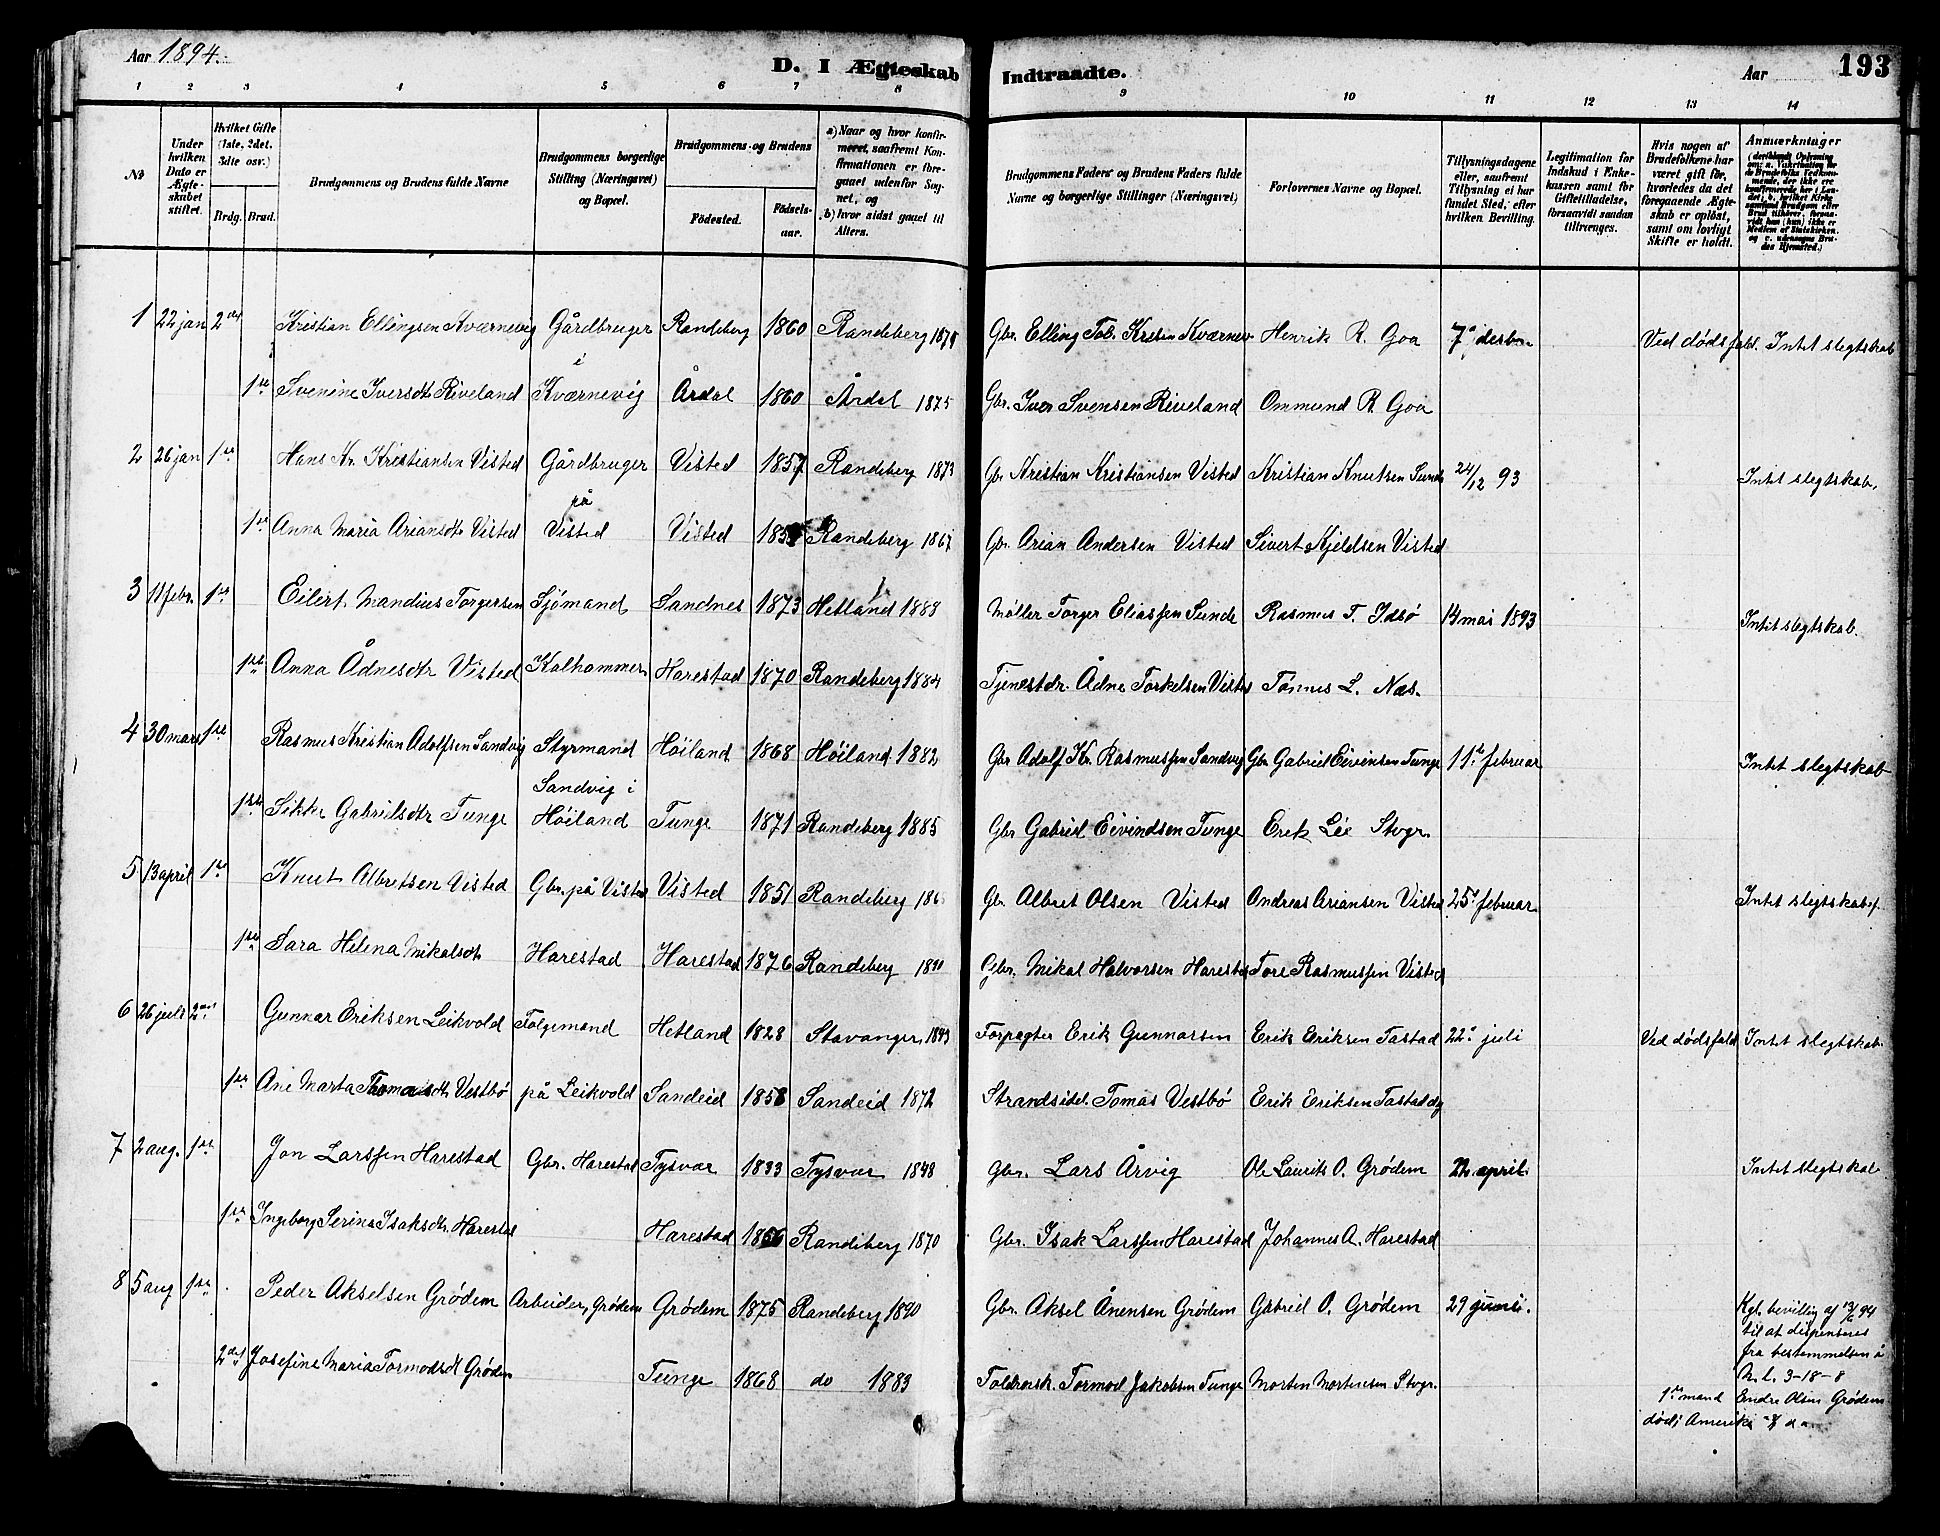 Aar 1894. D. I Ægteskab Indtraadte. Aar 193
1 2 3 4 5 6 7 8 9 10 11 12 13 14
No
Under hvilken Dato er Ægteskabet stiftet.
Hvilket Gifte (1ste, 2det, 3die osv.)
Brdg. Brud.
Brudgommens og Brudens fulde Navne
Brudgommens borgerlige Stilling (Næringsvei) og Bopæl.
Brudgommens og Brudens
Födested. Födselsaar.
a) Naar og hvor konfirmeret, saafremt Konfirmationen er foregaaet udenfor Sognet, og
b) hvor sidst gaaet til Alters.
Brudgommens Faders og Brudens Faders fulde Navne og borgerlige Stillinger (Næringsvei)
Forlovernes Navne og Bopæl.
Tillysningsdagene eller, saafremt Tillysning ei har fundet Sted, efter hvilken Bevilling.
Legitimation for Indskud i Enkekassen samt for Giftetilladelse, forsaavidt saadan tiltrænges.
Hvis nogen af Brudefolkene har været gift för, hvorledes da det foregaaende Ægteskab er oplöst, samt om lovligt Skifte er holdt.
Anmærkninger
1 22 jan 2det Kristian Ellingsen Kværnevig Gårdbruger Randeberg 1860 Randeberg Gbr. Elling Tob. Kristen Kværnev Henrik R. Goa 7' desbr. Ved dødsfald. Intet slegtskab
i
1ste Svenine Iversdtr Riveland Kværnevig Årdal 1860 Årdal 1875 Gbr. Iver Svensen Riveland Ommund R Goa
2 26 jan 1ste Hans Kr. Kristiansen Visted Gårdbruger Visted 1857 Randeberg 1873 Gbr Kristian Kristiansen Visted Kristian Knutsen Sunde 24/12 93 Intet slegtskab.
på
1ste Anna Maria Ariansdtr Visted Visted Visted Randeberg 1867 Gbr. Arian Andersen Visted Sivert Kjeldsen Visted
3 11 febr. 1ste Eilert Mandius Torgersen Sjømand Sandnes 1873 Hetland 1888 Møller Torger Eliassen Sunde Rasmus T. Idsø 14 mai 1893 Intet slegtskab.
1ste Anna Ådnesdtr Visted Kalhammer Harestad 1870 Randeberg 1884 Tjenestdr. Ådne Torkelsen Visted Tønnes L. Næs.
4 30 mars 1ste Rasmus Kristian Adolfsen Sandvig Styrmand Høiland 1868 Høiland 1882 Gbr Adolf Kr. Rasmussen Sandvig Gbr. Gabriel Eivinsen Tunge 11te februar Intet slegtskab
Sandvig i
1ste Sikke Gabrielsdtr Tunge Høiland Tunge 1871 Randeberg 1885 Gbr Gabriel Eivindsen Tunge Erik Lie Stvgr.
5 13 april 1ste Knut Albretsen Visted Gbr. på Visted Visted 1851 Randeberg Gbr. Albret Olsen Visted Andreas Ariansen Visted 25' februar Intet slegtskab.
1ste Sara Helena Mikalsdtr Harestad Harestad 1876 Randeberg 1891 Gbr. Mikal Halvorsen Harestad Tore Rasmussen Visted
6 26 juli 2det Gunnar Eriksen Leikvold Følgemand Hetland 1828 Stavanger Forpagter Erik Gunnarsen Erik Eriksen Tastad 22' juli Ved dødsfald Intet slegtskab
1ste Ane Marta Thomasdtr Vestbø på Leikvold Sandeid 1858 Sandeid 1872 Strandsidd. Tomas Vestbø Erik Eriksen Tastad
7 2 aug. 1ste Jon Larssen Harestad Gbr. Harestad Tysvær 1833 Tysvær 1848 Gbr. Lars Årvig Ole Laurits O. Grødem 22 april Intet slegtskab
1ste Ingeborg Serina Isaksdtr. Harestad Harestad Randeberg 1870 Gbr. Isak Larssen Harestad Johannes A. Harestad
8 5 aug 1ste Peder Akselsen Grødem Arbeider, Grødem Grødem 1875 Randeberg 1890 Gbr. Aksel Ånensen Grødem Gabriel O. Grødem 29 juni. Kgl. bevilling af 13/6 94
til at dispenseres
fra bestemmelsen i
N. L. 3-18-8
2det Josefine Maria Tormodsdt Grødem Tunge 1868 do 1883 Toldrorsk. Tormod Jakobsen Tunge Morten Mortensen Stvgr.
1ste mand Endre Olsen Grødem
død i Amerika